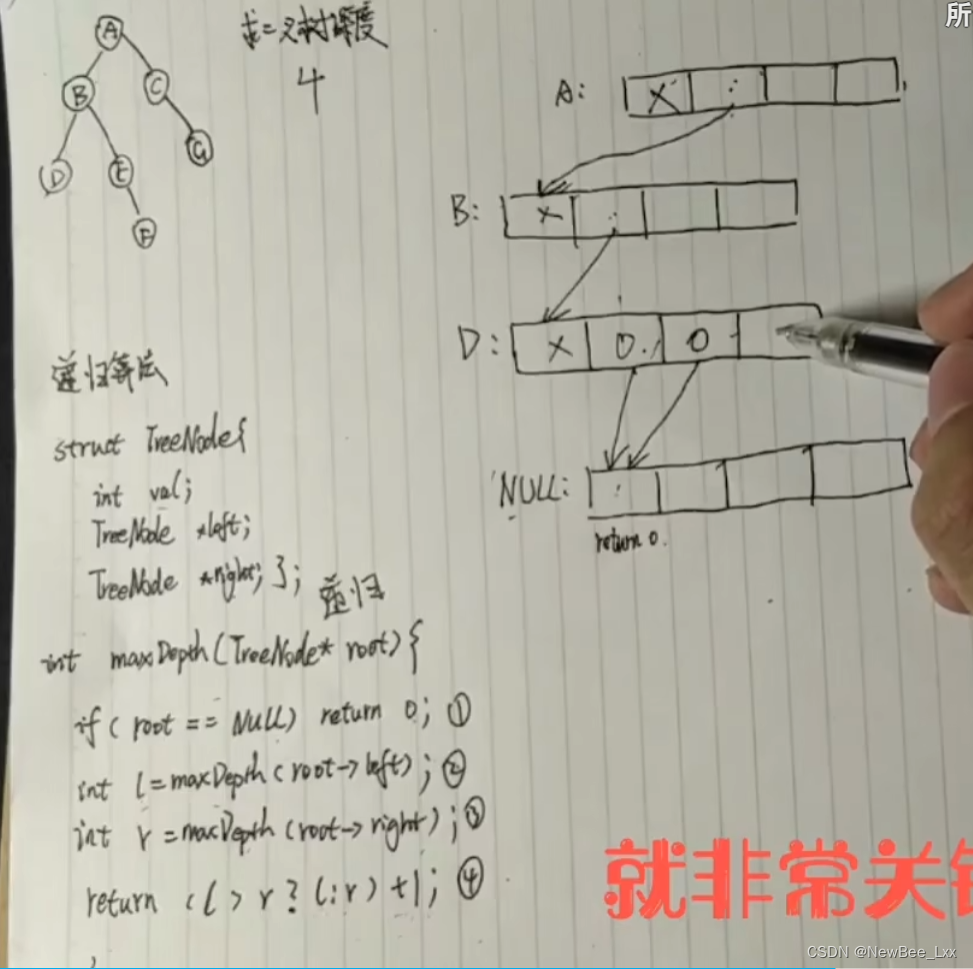 所
A
B
C
D
E
G
F
求二叉树深度
4
A: X
B: X
D: X 0 0
NULL:
return 0.
递归算法
struct TreeNode{
int val;
TreeNode *left;
TreeNode *right; };
递归
int maxDepth(TreeNode* root){
if( root == NULL) return 0; ①
int l=maxDepth(root->left); ②
int r =maxDepth(root->right); ③
return (l > r ? l:r) +1; ④
就非常关键
CSDN @NewBee_Lxx